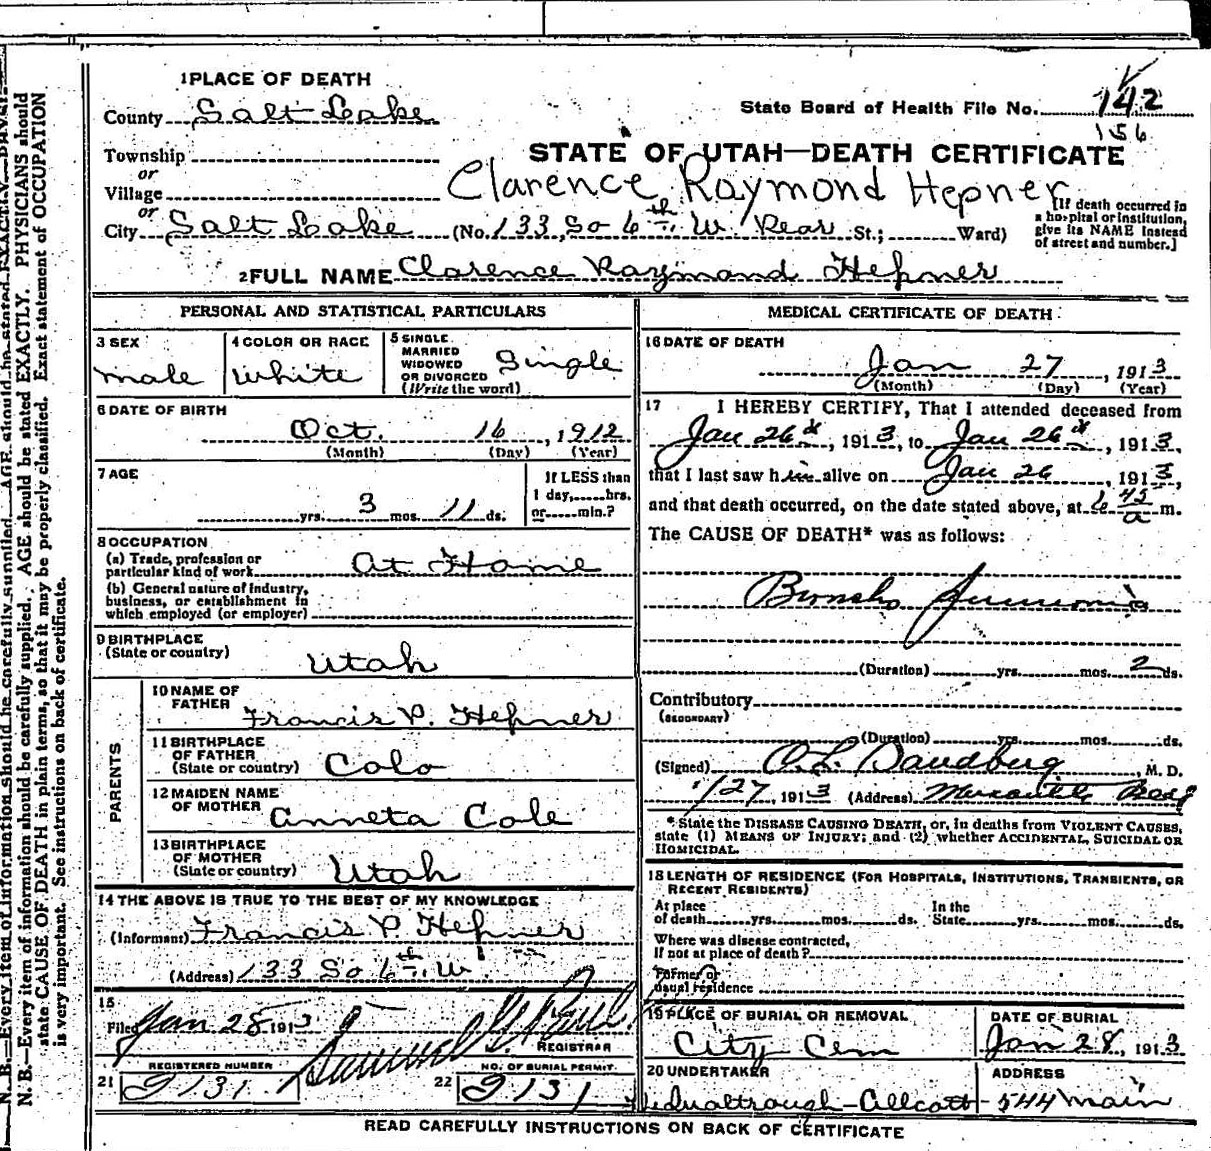 1 PLACE OF DEATH
County Salt Lake
State Board of Health File No. 142
156
Township
or
STATE OF UTAH—DEATH CERTIFICATE
Village
Clarence Raymond Hepner
or
City Salt Lake (No. 133 So 6th W. Rear St.; Ward)
[If death occurred in
a hospital or institution,
give its NAME instead
of street and number.]
2 FULL NAME Clarence Raymond Hepner
PERSONAL AND STATISTICAL PARTICULARS
3 SEX
male
4 COLOR OR RACE
White
5 SINGLE
MARRIED
WIDOWED
OR DIVORCED
(Write the word)
Single
6 DATE OF BIRTH
Oct. 16, 1912
(Month) (Day) (Year)
7 AGE
yrs. 3 mos. 11 ds.
If LESS than
1 day, hrs.
or min.?
8 OCCUPATION
(a) Trade, profession or
particular kind of work At Home
(b) General nature of industry,
business, or establishment in
which employed (or employer)
9 BIRTHPLACE
(State or country)
Utah
PARENTS
10 NAME OF
FATHER
Francis P. Hepner
11 BIRTHPLACE
OF FATHER
(State or country) Colo
12 MAIDEN NAME
OF MOTHER
Anneta Cole
13 BIRTHPLACE
OF MOTHER
(State or country) Utah
14 THE ABOVE IS TRUE TO THE BEST OF MY KNOWLEDGE
(Informant) Francis P. Hepner
(Address) 133 So 6th W.
15
Filed Jan 28 1913
REGISTRAR
REGISTERED NUMBER
21 9131
NO. OF BURIAL PERMIT.
22 9131
MEDICAL CERTIFICATE OF DEATH
16 DATE OF DEATH
Jan 27, 1913
(Month) (Day) (Year)
17 I HEREBY CERTIFY, That I attended deceased from
Jan 26th, 1913, to Jan 26th, 1913,
that I last saw him alive on Jan 26, 1913,
and that death occurred, on the date stated above, at 6 45 a m.
The CAUSE OF DEATH* was as follows:
Broncho Pneumonia
(Duration) yrs. mos. 2 ds.
Contributory
(SECONDARY)
(Duration) yrs. mos. ds.
(Signed) O. L. Sandberg, M. D.
1/27, 1913 (Address) Mercantile
*State the DISEASE CAUSING DEATH, or, in deaths from VIOLENT CAUSES,
state (1) MEANS OF INJURY; and (2) whether ACCIDENTAL, SUICIDAL OR
HOMICIDAL.
18 LENGTH OF RESIDENCE (FOR HOSPITALS, INSTITUTIONS, TRANSIENTS, OR
RECENT RESIDENTS)
At place
of death yrs. mos. ds.
In the
State yrs. mos. ds.
Where was disease contracted,
If not at place of death?
Former or
usual residence
19 PLACE OF BURIAL OR REMOVAL
City Cem
DATE OF BURIAL
Jan 28, 1913
20 UNDERTAKER
ADDRESS
544 Main
READ CAREFULLY INSTRUCTIONS ON BACK OF CERTIFICATE
N. B.—Every item of information should be carefully supplied. AGE should be stated EXACTLY. PHYSICIANS should
state CAUSE OF DEATH in plain terms, so that it may be properly classified. Exact statement of OCCUPATION
is very important. See instructions on back of certificate.